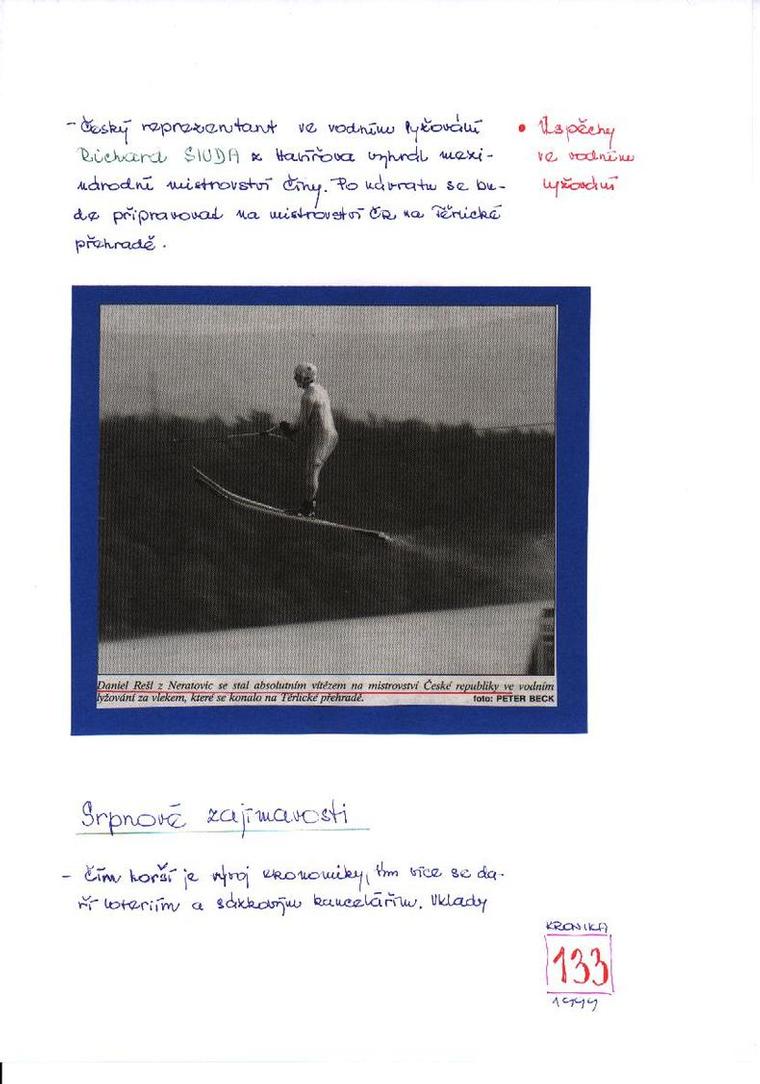 - Český reprezentant ve vodním lyžování
Richard SIUDA z Havířova vyhrál mezi-
národní mistrovství Číny. Po návratu se bu-
de připravovat na mistrovství ČR na Těrlické
přehradě.
• Úspěchy
ve vodním
lyžování
Daniel Rešl z Neratovic se stal absolutním vítězem na mistrovství České republiky ve vodním
lyžování za vlekem, které se konalo na Těrlické přehradě. foto: PETER BECK
Srpnové zajímavosti
- Čím horší je vývoj ekonomiky, tím více se da-
ří loteriím a sázkovým kancelářím. Vklady
KRONIKA
133
1999